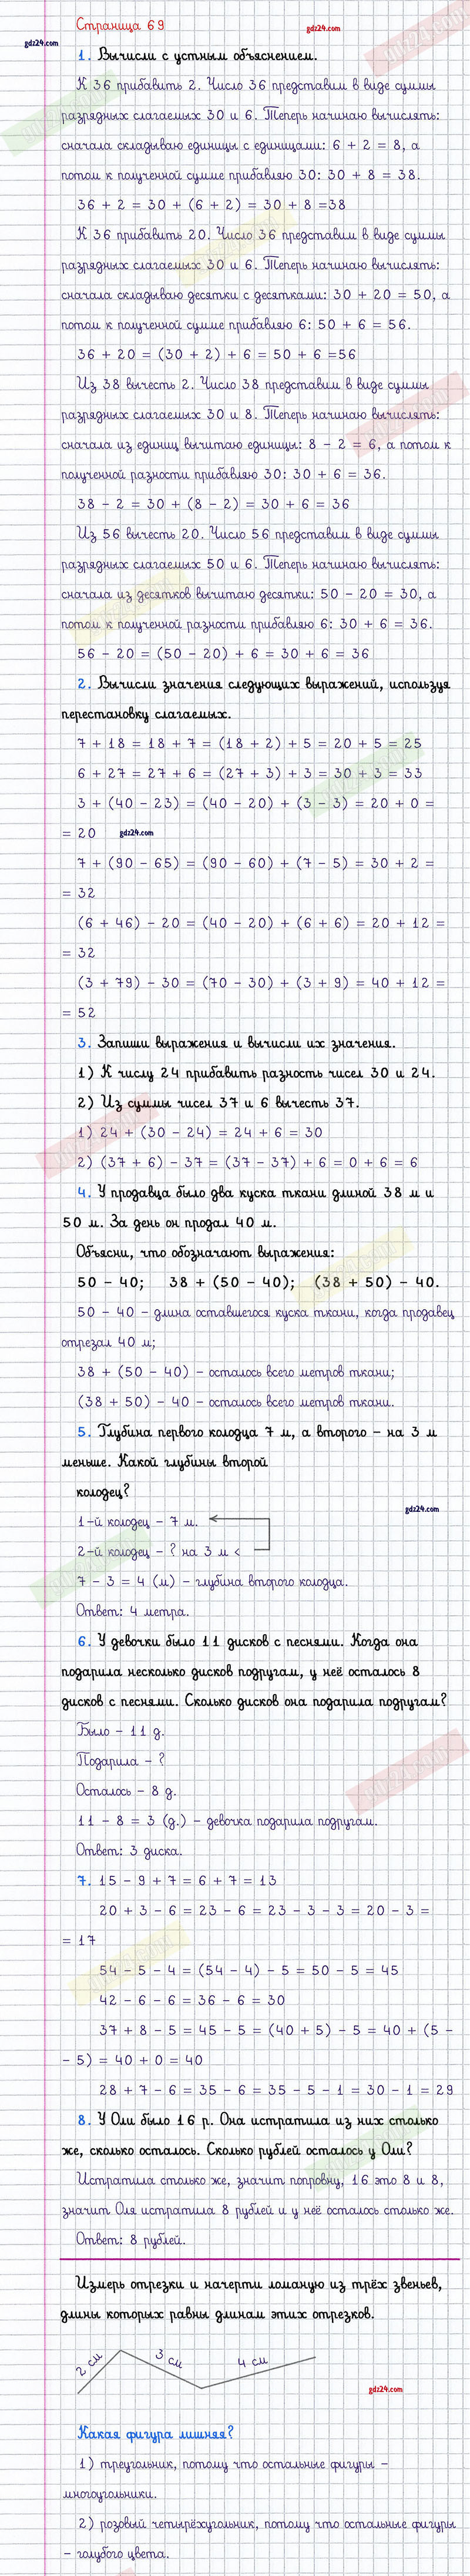 Страница 69
gdz24.com
gdz24.com
1. Вычисли с устным объяснением.
К 36 прибавить 2. Число 36 представим в виде суммы
разрядных слагаемых 30 и 6. Теперь начинаю вычислять:
сначала складываю единицы с единицами: 6 + 2 = 8, а
потом к полученной сумме прибавляю 30: 30 + 8 = 38.
36 + 2 = 30 + (6 + 2) = 30 + 8 =38
К 36 прибавить 20. Число 36 представим в виде суммы
разрядных слагаемых 30 и 6. Теперь начинаю вычислять:
сначала складываю десятки с десятками: 30 + 20 = 50, а
потом к полученной сумме прибавляю 6: 50 + 6 = 56.
36 + 20 = (30 + 2) + 6 = 50 + 6 =56
Из 38 вычесть 2. Число 38 представим в виде суммы
разрядных слагаемых 30 и 8. Теперь начинаю вычислять:
сначала из единиц вычитаю единицы: 8 - 2 = 6, а потом к
полученной разности прибавляю 30: 30 + 6 = 36.
38 - 2 = 30 + (8 - 2) = 30 + 6 = 36
Из 56 вычесть 20. Число 56 представим в виде суммы
разрядных слагаемых 50 и 6. Теперь начинаю вычислять:
сначала из десятков вычитаю десятки: 50 - 20 = 30, а
потом к полученной разности прибавляю 6: 30 + 6 = 36.
56 - 20 = (50 - 20) + 6 = 30 + 6 = 36
2. Вычисли значения следующих выражений, используя
перестановку слагаемых.
7 + 18 = 18 + 7 = (18 + 2) + 5 = 20 + 5 = 25
6 + 27 = 27 + 6 = (27 + 3) + 3 = 30 + 3 = 33
3 + (40 - 23) = (40 - 20) + (3 - 3) = 20 + 0 =
= 20
gdz24.com
7 + (90 - 65) = (90 - 60) + (7 - 5) = 30 + 2 =
= 32
(6 + 46) - 20 = (40 - 20) + (6 + 6) = 20 + 12 =
= 32
(3 + 79) - 30 = (70 - 30) + (3 + 9) = 40 + 12 =
= 52
3. Запиши выражения и вычисли их значения.
1) К числу 24 прибавить разность чисел 30 и 24.
2) Из суммы чисел 37 и 6 вычесть 37.
1) 24 + (30 - 24) = 24 + 6 = 30
2) (37 + 6) - 37 = (37 - 37) + 6 = 0 + 6 = 6
4. У продавца было два куска ткани длиной 38 м и
50 м. За день он продал 40 м.
Объясни, что обозначают выражения:
50 - 40; 38 + (50 - 40); (38 + 50) - 40.
50 - 40 - длина оставшегося куска ткани, когда продавец
отрезал 40 м;
38 + (50 - 40) - осталось всего метров ткани;
(38 + 50) - 40 - осталось всего метров ткани.
5. Глубина первого колодца 7 м, а второго - на 3 м
меньше. Какой глубины второй
колодец?
gdz24.com
1-й колодец - 7 м.
2-й колодец - ? на 3 м <
7 - 3 = 4 (м) - глубина второго колодца.
Ответ: 4 метра.
6. У девочки было 11 дисков с песнями. Когда она
подарила несколько дисков подругам, у неё осталось 8
дисков с песнями. Сколько дисков она подарила подругам?
Было - 11 д.
Подарила - ?
Осталось - 8 д.
11 - 8 = 3 (д.) - девочка подарила подругам.
Ответ: 3 диска.
7. 15 - 9 + 7 = 6 + 7 = 13
20 + 3 - 6 = 23 - 6 = 23 - 3 - 3 = 20 - 3 =
= 17
54 - 5 - 4 = (54 - 4) - 5 = 50 - 5 = 45
42 - 6 - 6 = 36 - 6 = 30
37 + 8 - 5 = 45 - 5 = (40 + 5) - 5 = 40 + (5 -
- 5) = 40 + 0 = 40
28 + 7 - 6 = 35 - 6 = 35 - 5 - 1 = 30 - 1 = 29
8. У Оли было 16 р. Она истратила из них столько
же, сколько осталось. Сколько рублей осталось у Оли?
Истратила столько же, значит поровну, 16 это 8 и 8,
значит Оля истратила 8 рублей и у неё осталось столько же.
Ответ: 8 рублей.
Измерь отрезки и начерти ломаную из трёх звеньев,
длины которых равны длинам этих отрезков.
2 см
3 см
4 см
gdz24.com
Какая фигура лишняя?
1) треугольник, потому что остальные фигуры -
многоугольники.
2) розовый четырёхугольник, потому что остальные фигуры
- голубого цвета.